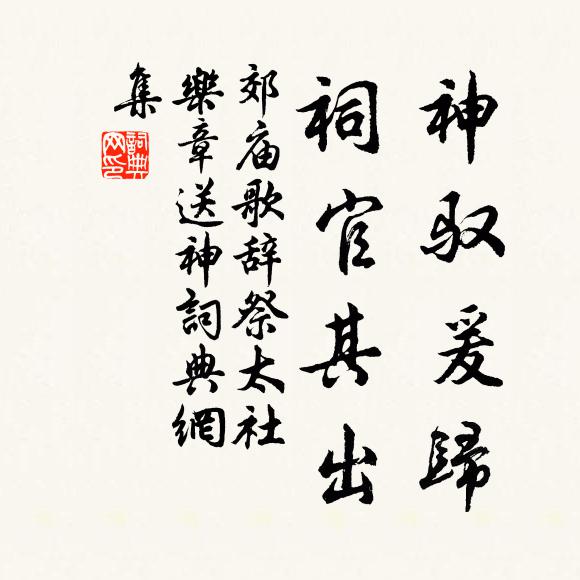 神驭爰歸
祠官其出
郊庙歌辞祭太社
樂章送神詞典網
集
詞典
网印